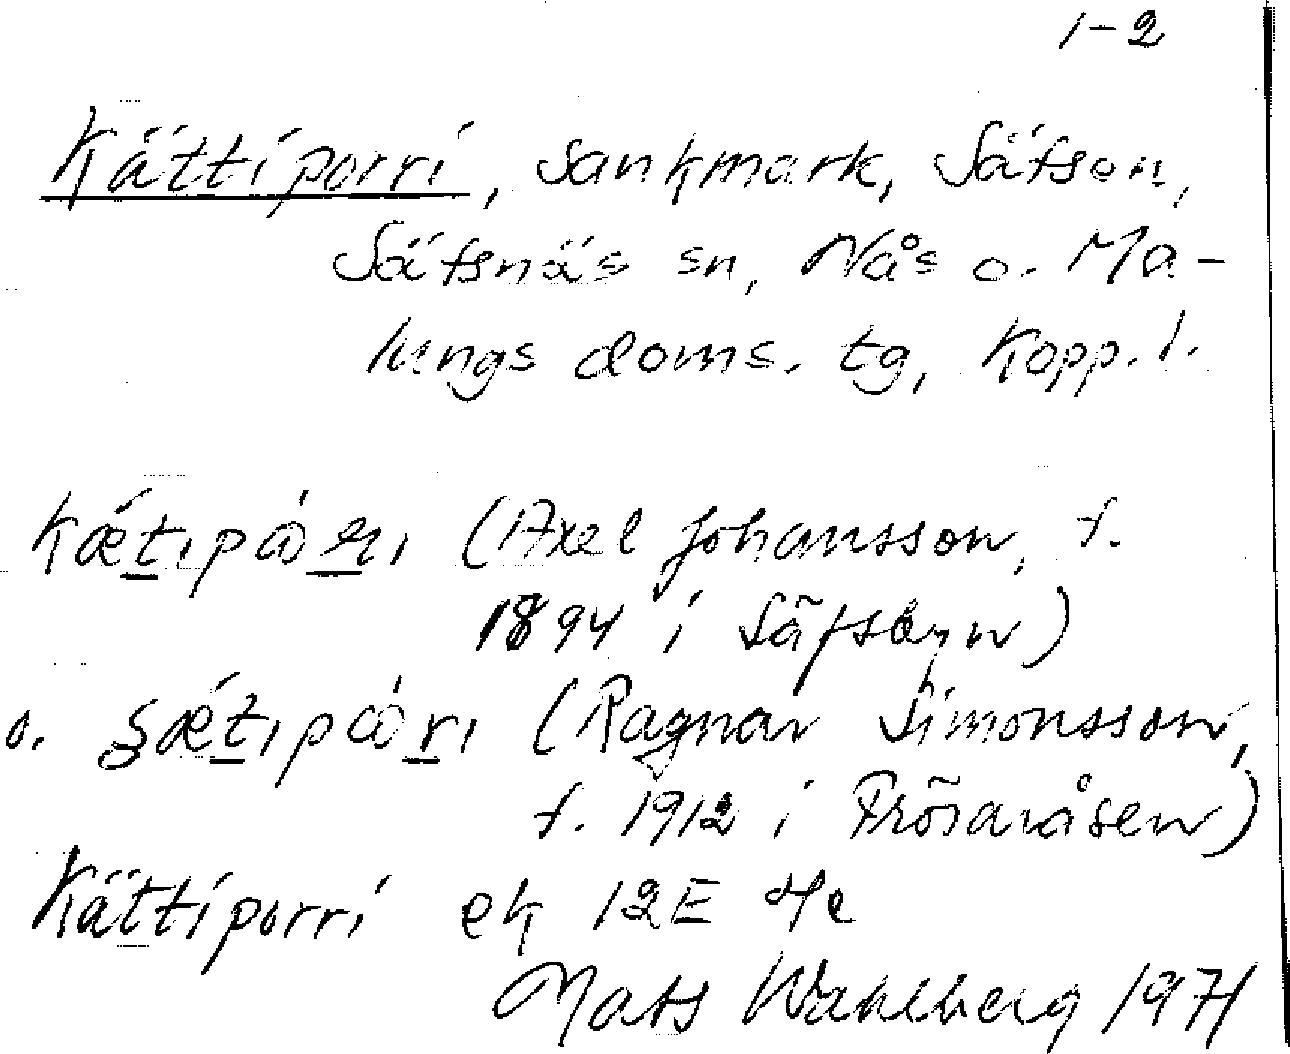 1-2
Kättiporri, sankmark, Säfsen,
Säfsnäs sn, Nås o. Ma-
lungs doms. tg, Kopp. l.
(Axel Johansson, f.
1894 i Säfsbyn)
o. (Ragnar Simonsson,
f. 1912 i Frösaråsen)
Kättiporri ek 12E 4e
Mats Wahlberg 1971